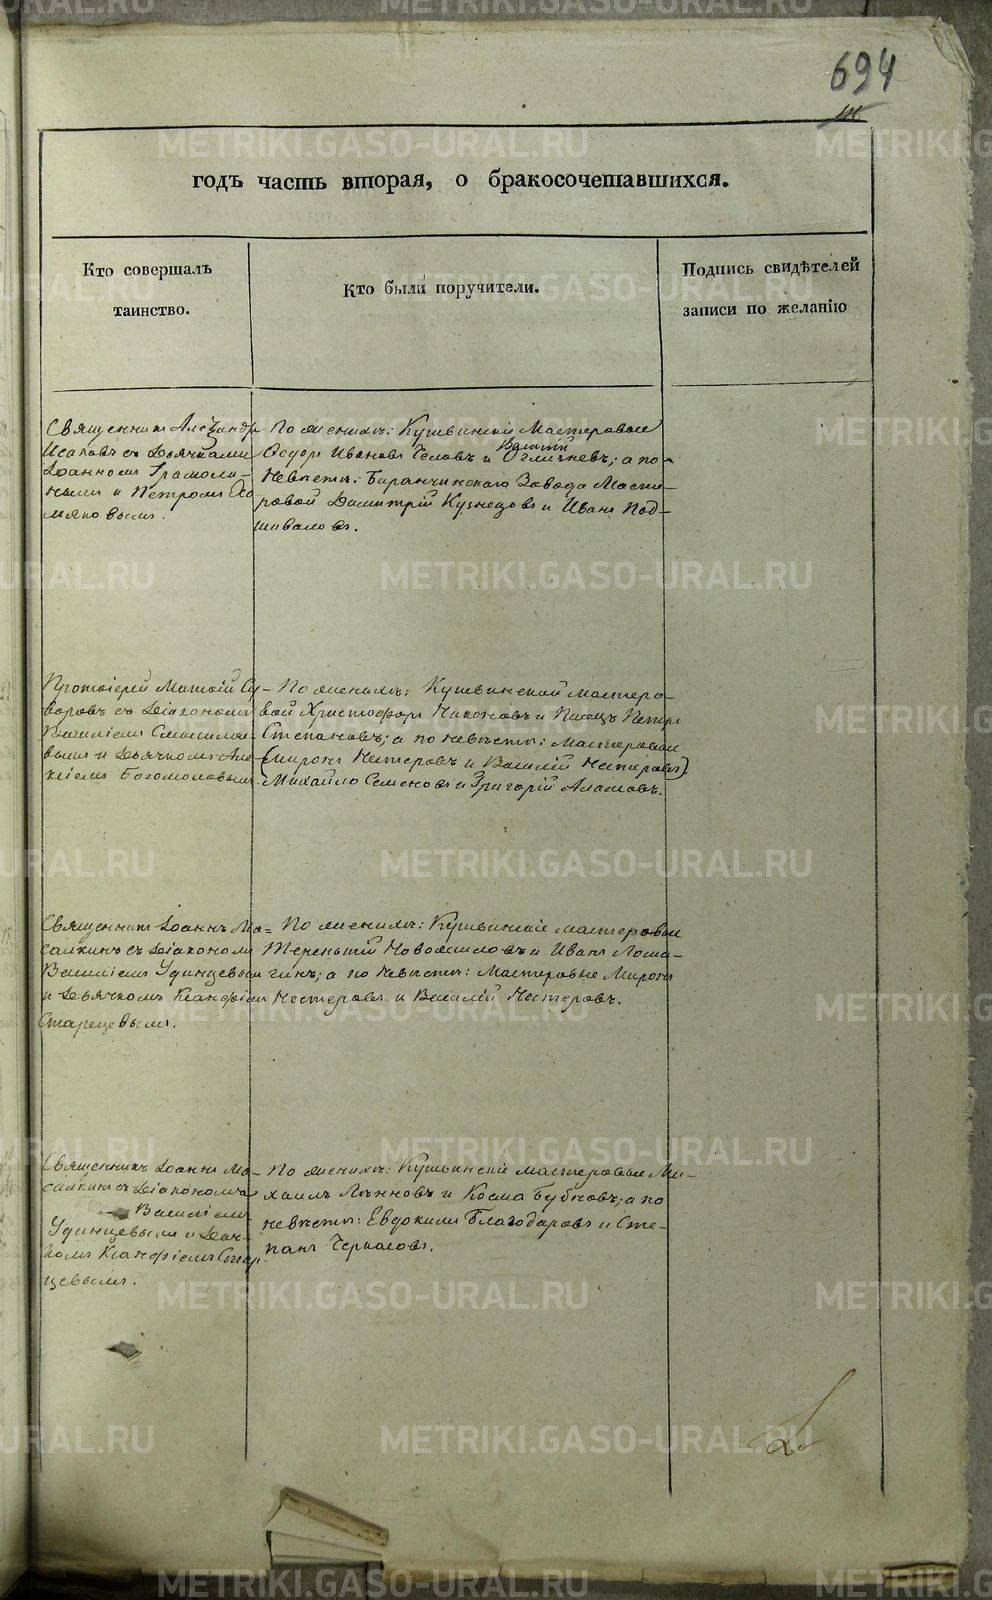 694
годъ часть вторая, о бракосочетавшихся.
Кто совершалъ
таинство.
Кто были поручители.
Подпись свидѣтелей
записи по желанію
Священник Александръ
Исаковъ съ Дьячками
Іоанномъ Грамоли-
нымъ и Петромъ Хо
мяковымъ.
По женихѣ: Кушвинскіе Мастеровые
Ѳедоръ Ивановъ и Василій; а по
Невѣстѣ: Баранчинскаго Завода Масте-
ровой Димитрій Кузнецовъ и Иванъ Под-
шиваловъ.
Протоіерей Матѳій Су-
воровъ съ Діакономъ
Василіемъ
вымъ и Дьячкомъ Але-
ксіемъ Богомоловымъ
По женихѣ: Кушвинской Мастеро-
вой Христофоръ Никоновъ и Писецъ Петръ
Степановъ; а по невѣстѣ: Мастеровые
(Миронъ Нестеровъ и Василій Нестеровъ)
Михайло Семеновъ и Григорій
Священник Іоаннъ Мо-
салкинъ съ Діакономъ
Василіемъ Удинцевым
и Дьячкомъ Ксанфіемъ
Старцевымъ.
По женихѣ: Кушвинскіе мастеровые
Терентій Новожиловъ и Иванъ Лома-
гинъ; а по Невѣстѣ: Мастеровые Миронъ
Нестеровъ и Василій Нестеровъ.
Священникъ Іоаннъ Мо-
салкинъ съ Діакономъ
Василіемъ
Удинцевымъ и Дьяч-
комъ Ксанфіемъ Стар
цевымъ.
По женихѣ: Кушвинскіе мастеровые Ми-
хаилъ и Косма Бубновъ; а по
невѣстѣ: Евдокимъ Благодаровъ и Сте-
панъ Черкасовъ.
METRIKI.GASO-URAL.RU